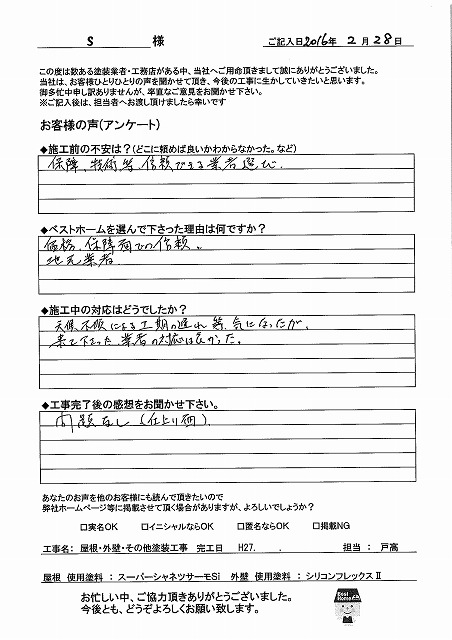 S 様 ご記入日2016年 2月28日
この度は数ある塗装業者・工務店がある中、当社へご用命頂きまして誠にありがとうございました。
当社は、お客様ひとりひとりの声を聞かせて頂き、今後の工事に生かしていきたいと思います。
御多忙中申し訳ありませんが、率直なご意見をお聞かせ下さい。
※ご記入後は、担当者へお渡し頂けましたら幸いです
お客様の声(アンケート)
◆施工前の不安は？(どこに頼めば良いかわからなかった。など)
保障、技術等、信頼できる業者選び.
◆ベストホームを選んで下さった理由は何ですか？
価格、保障面での信頼。
地元業者
◆施工中の対応はどうでしたか？
天候不順による工期の遅れ等、気になったが、
来て下さった業者の対応は良かった。
◆工事完了後の感想をお聞かせ下さい。
問題なし(仕上り面)
あなたのお声を他のお客様にも読んで頂きたいので
弊社ホームページ等に掲載させて頂く場合がありますが、よろしいでしょうか？
□実名OK □イニシャルならOK □匿名ならOK □掲載NG
工事名： 屋根・外壁・その他塗装工事 完工日 H27. . 担当： 戸高
屋根 使用塗料 ：スーパーシャネツサーモSi 外壁 使用塗料 ：シリコンフレックスⅡ
お忙しい中、ご協力頂きありがとうございました。
今後とも、どうぞよろしくお願い致します。
Best
Home